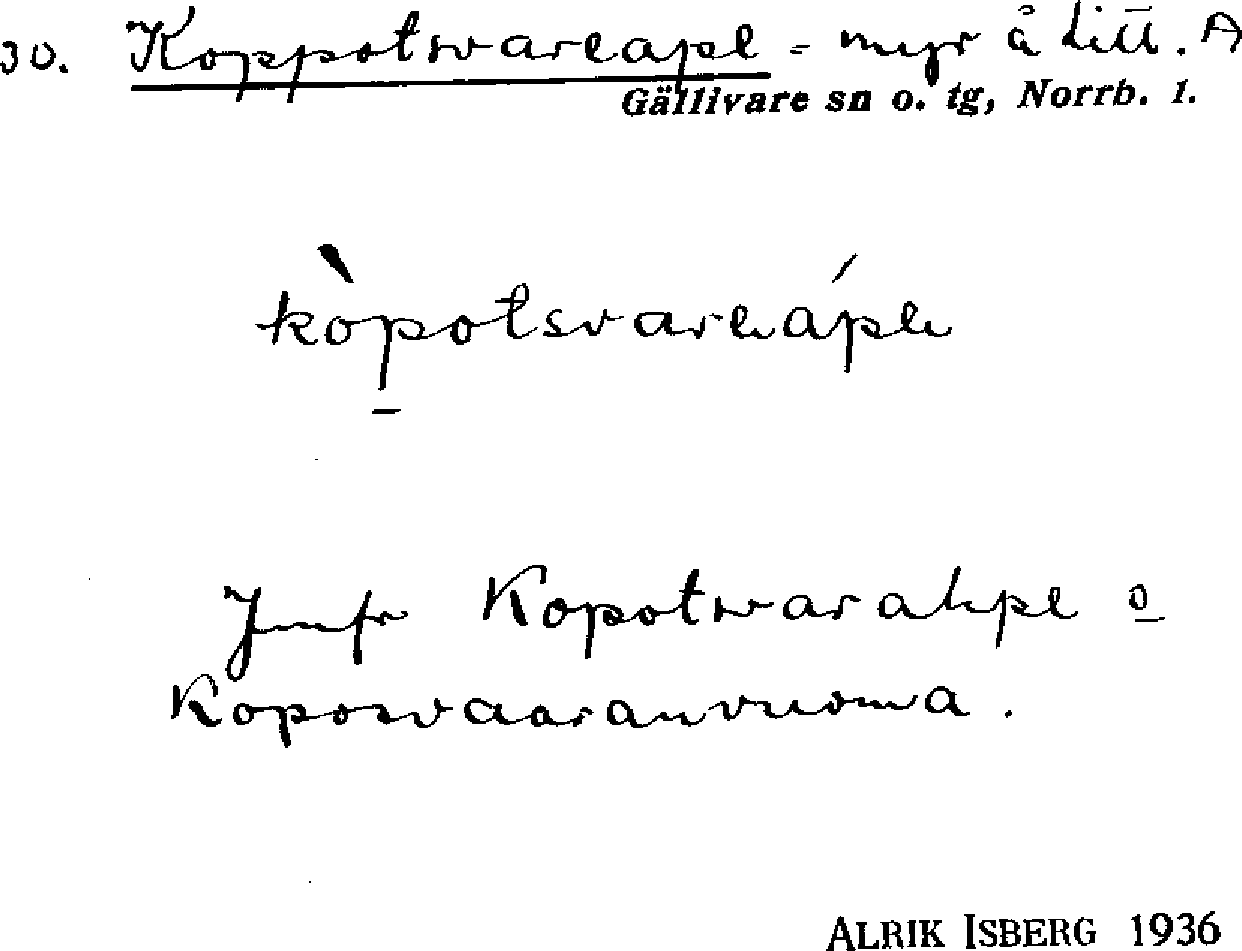 30. Koppotsvareape - myr å Litt. A
Gällivare sn o. tg, Norrb. l.
kòpotsvareápe
Jmfr Kopotsvarahpe o
Koposvaaranvuoma.
ALRIK ISBERG 1936